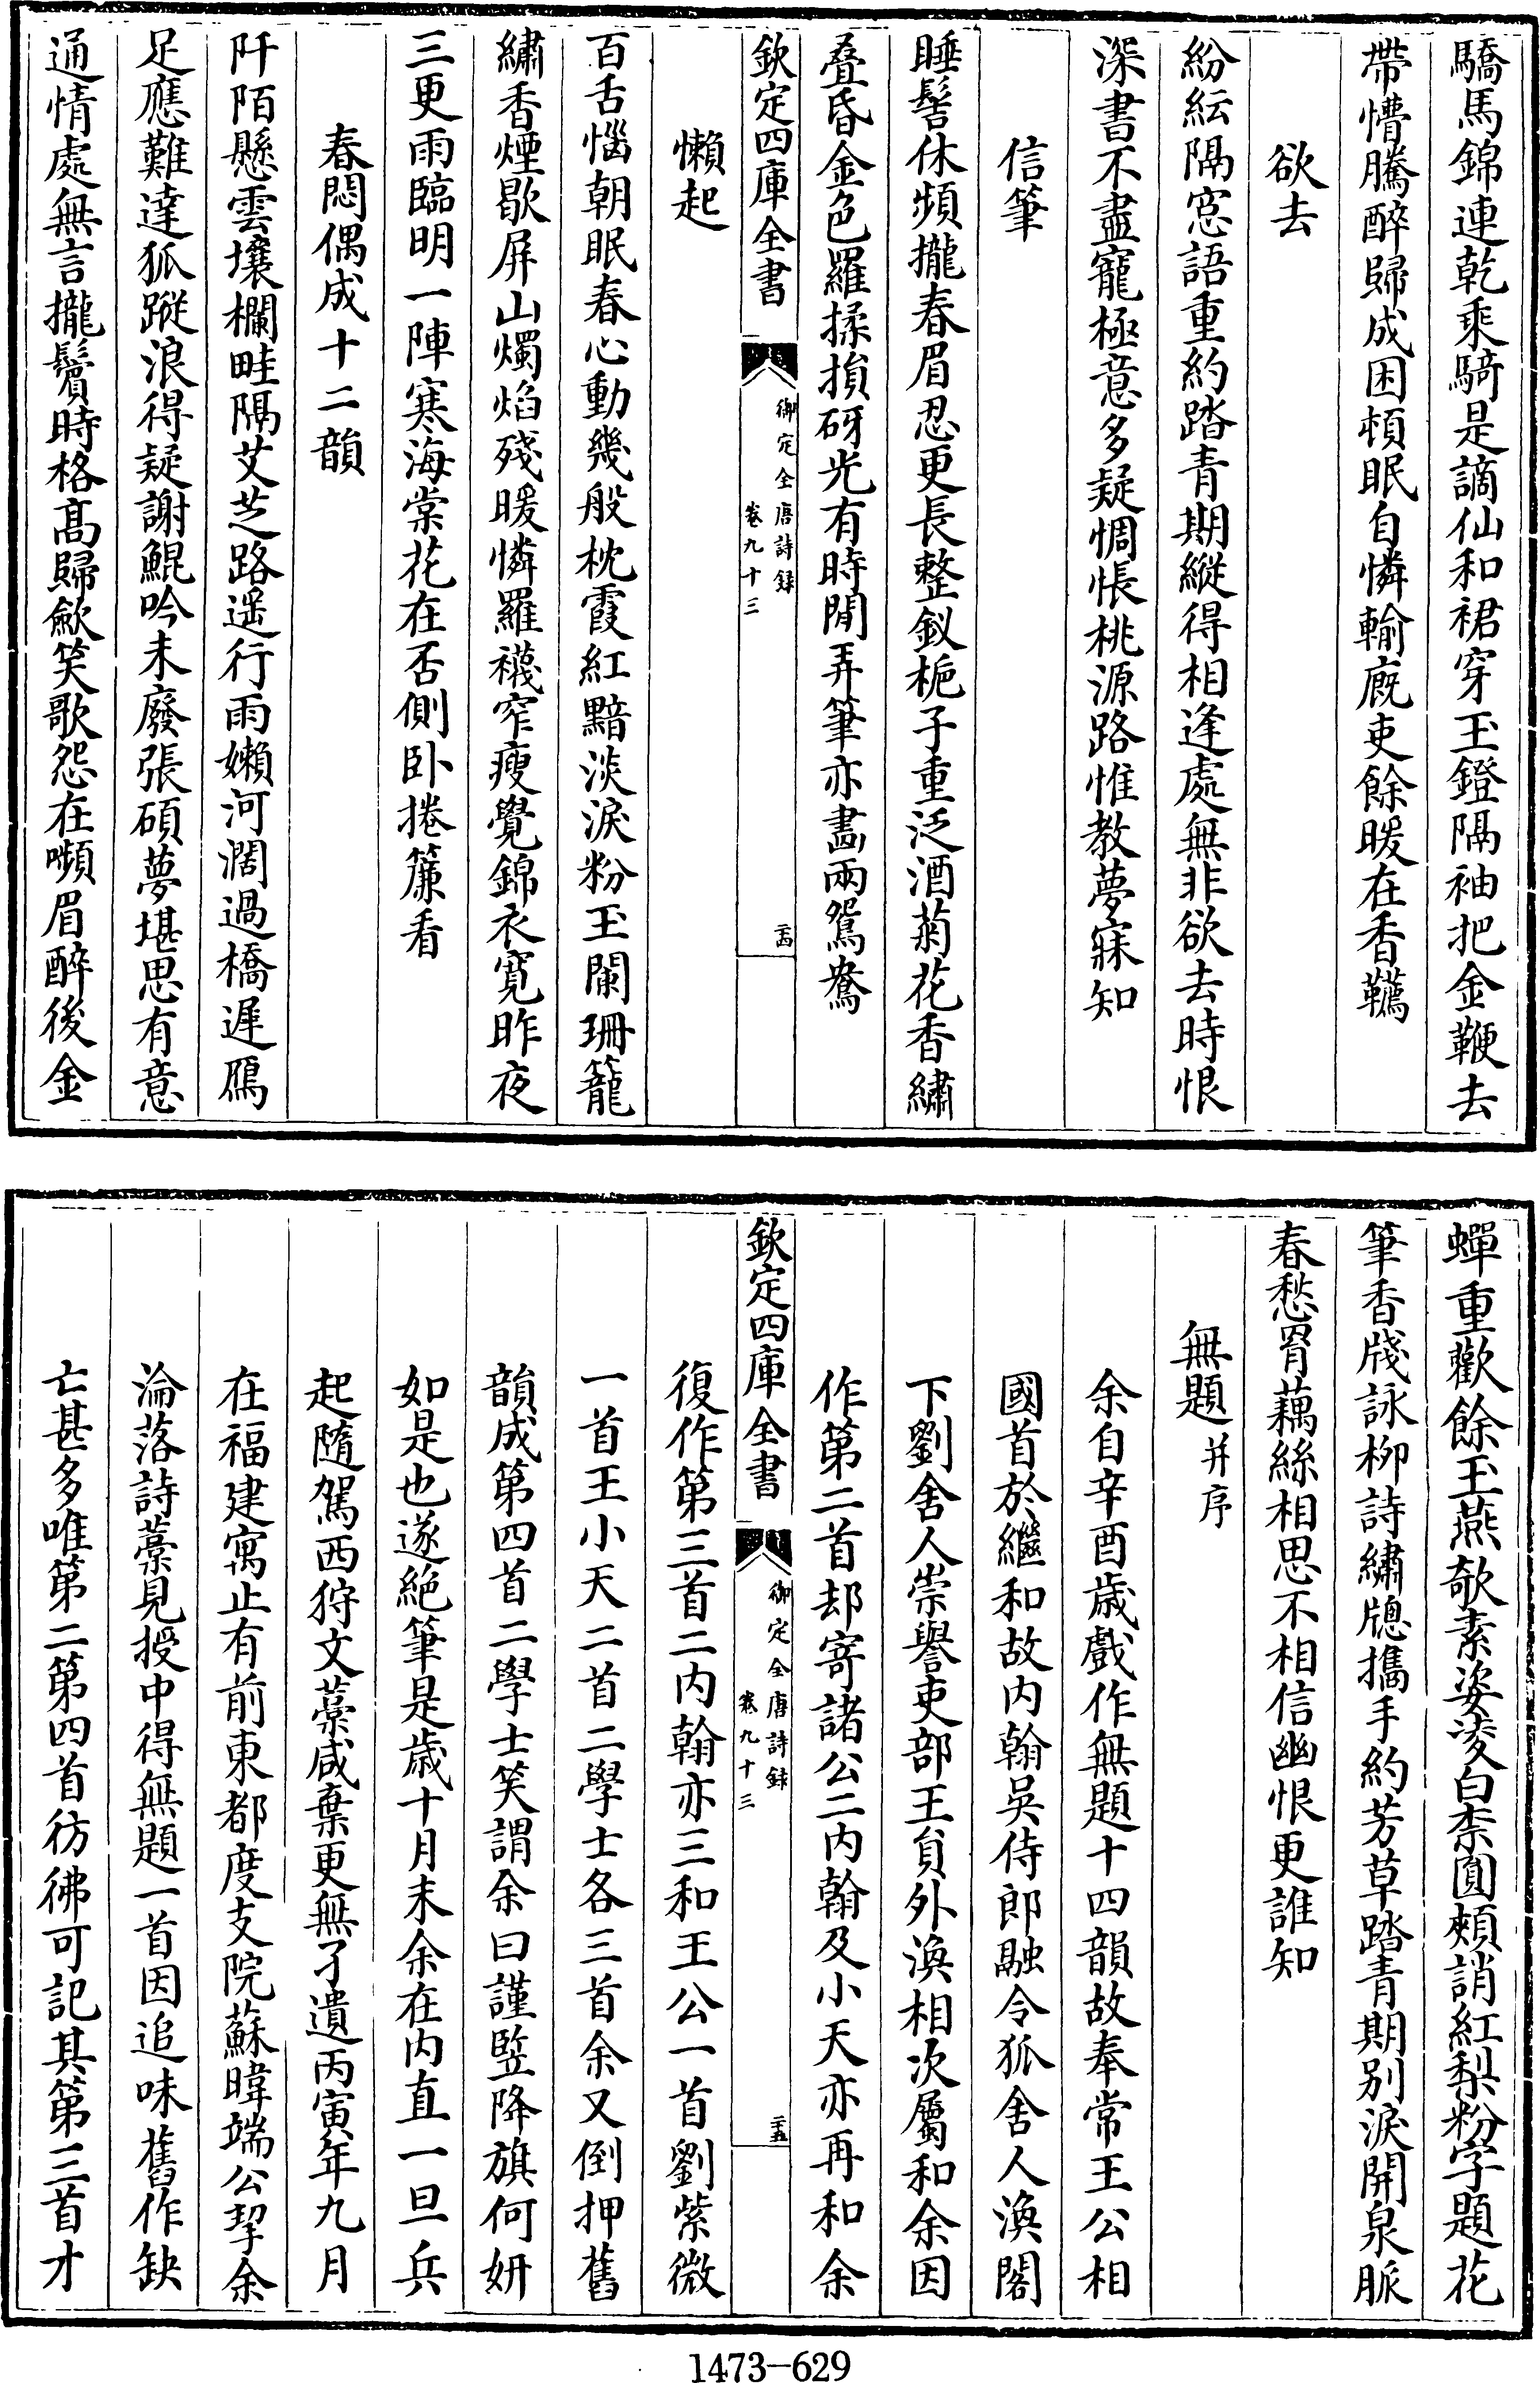 驕馬錦連乾乘騎是謫仙和裙穿玉鐙隔袖把金鞭去
帶懵騰醉歸成困頓眠自憐輸廐吏餘暖在香韀
欲去
紛紜隔窓語重約踏青期縱得相逢處無非欲去時恨
深書不盡寵極意多疑惆悵桃源路惟教夢寐知
信筆
睡髻休頻攏春眉忍更長整釵梔子重泛酒菊花香繡
疊昏金色羅揉損砑光有時閒弄筆亦畵兩鴛鴦
欽定四庫全書
御定全唐詩録
卷九十三
二十四
懶起
百舌惱朝眠春心動幾般枕霞紅黯淡淚粉玉闌珊籠
繡香煙歇屏山燭焰殘暖憐羅襪窄瘦覺錦衣寛昨夜
三更雨臨明一陣寒海棠花在否側卧捲簾看
春悶偶成十二韻
阡陌懸雲壤欄畦隔艾芝路遥行雨嬾河濶過橋遲鴈
足應難達狐蹤浪得疑謝鯤吟未廢張碩夢堪思有意
通情處無言攏鬢時格髙歸歛笑歌怨在嚬眉醉後金
蟬重歡餘玉燕欹素姿凌白柰圓頰誚紅梨粉字題花
筆香牋詠栁詩繡牕攜手約芳草踏青期别淚開泉脈
春愁罥藕絲相思不相信幽恨更誰知
無題并序
余自辛酉歳戲作無題十四韻故奉常王公相
國首於繼和故内翰吳侍郎融令狐舍人渙閣
下劉舍人崇譽吏部王負外渙相次屬和余因
作第二首却寄諸公二内翰及小天亦再和余
欽定四庫全書
御定全唐詩録
卷九十三
二十五
復作第三首二内翰亦三和王公一首劉紫微
一首王小天二首二學士各三首余又倒押舊
韻成第四首二學士笑謂余曰謹竪降旗何妍
如是也遂絶筆是歳十月末余在内直一旦兵
起隨駕西狩文藁咸棄更無孑遺丙寅年九月
在福建寓止有前東都度支院蘇暐端公挈余
淪落詩藁見授中得無題一首因追味舊作缺
亡甚多唯第二第四首彷彿可記其第三首才
1473-629